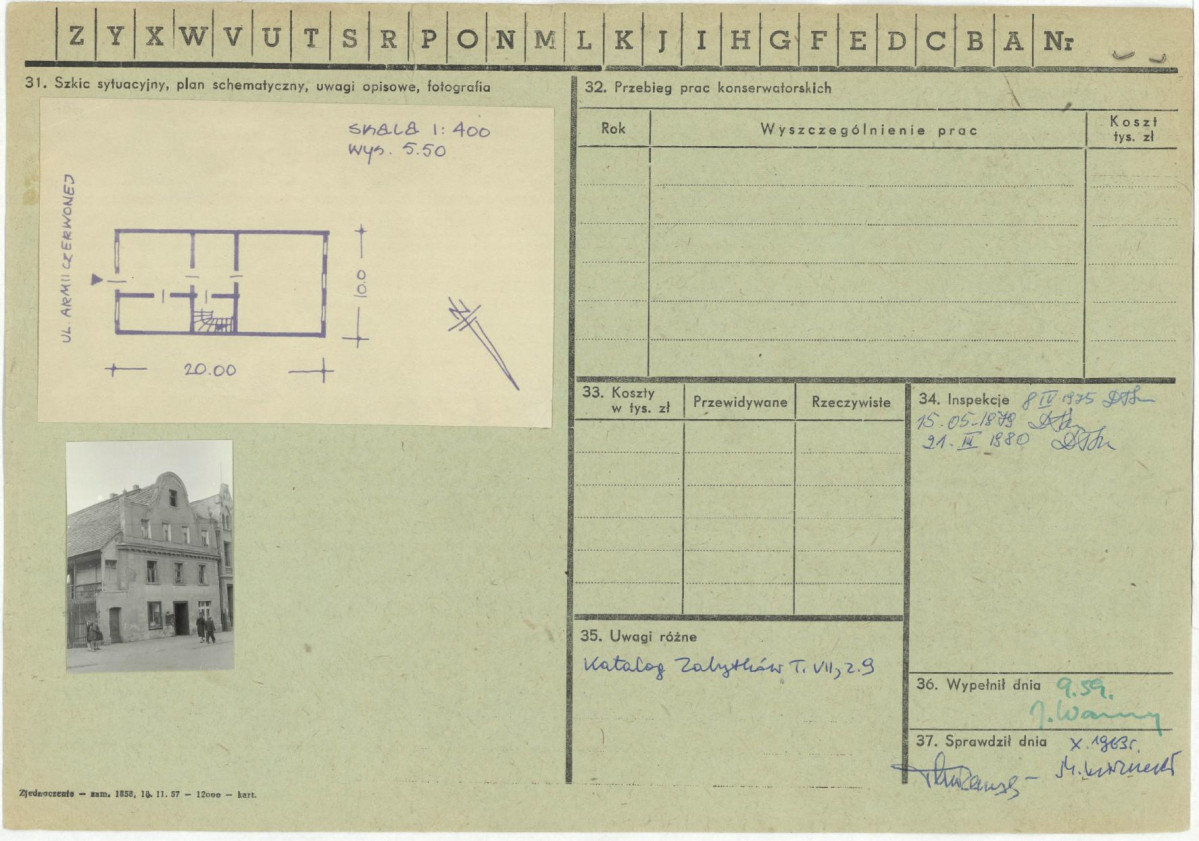 Z Y X W V U T S R P O N M L K J I H G F E D C B A Nr
31. Szkic sytuacyjny, plan schematyczny, uwagi opisowe, fotografia
SKALA 1:400
WYS. 5.50
UL. ARMII CZERWONEJ
10.0
20.00
N
32. Przebieg prac konserwatorskich
Rok
Wyszczególnienie prac
Koszt
tys. zł
33. Koszty
w tys. zł
Przewidywane
Rzeczywiste
34. Inspekcje 8 IV 1975
15.05-1979
21. IX 1980
35. Uwagi różne
Katalog Zabytków T. VII, z. 9
36. Wypełnił dnia 9.59.
37. Sprawdził dnia X. 1963r.
Zjednoczenie — zam. 1858, 16. 11. 57 — 12000 — kart.